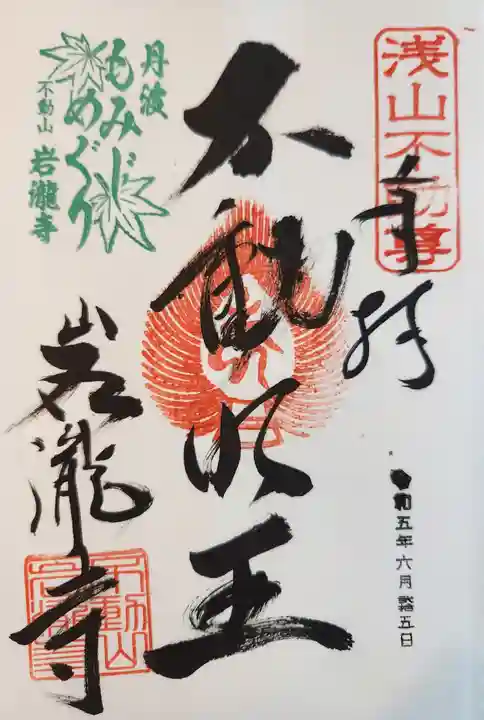 浅山不動尊
奉拝
令和五年六月 五日
不動明王
丹波
もみじ
めぐり
不動山
岩瀧寺
岩瀧寺
不動山
岩瀧寺